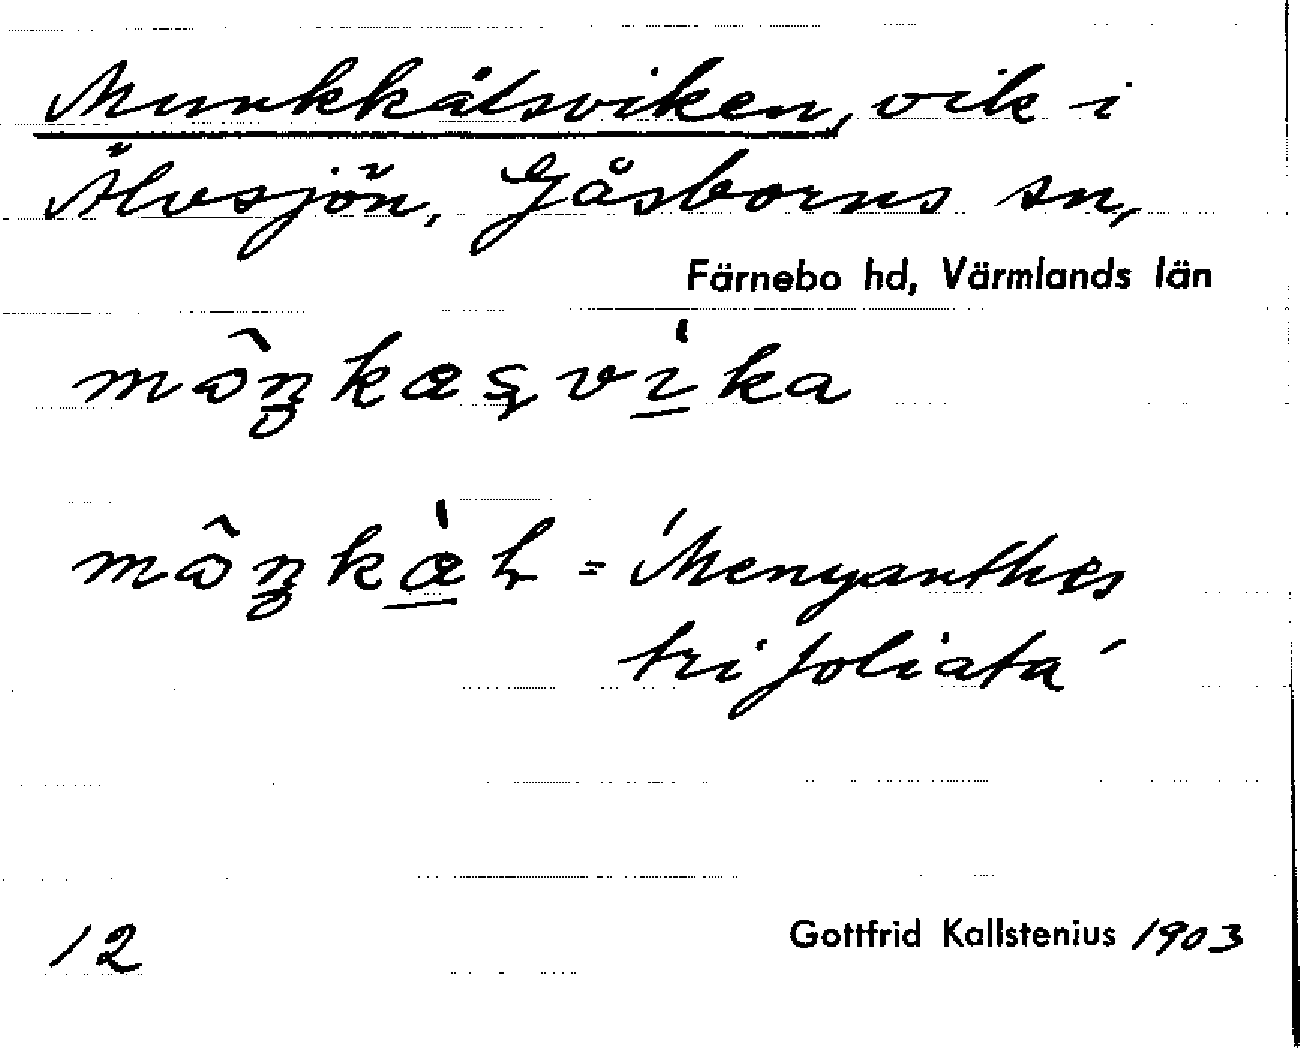 Munkkälsviken, vik i
Älvsjön, Gåsborns sn,
Färnebo hd, Värmlands län
= 'Menyanthes
trifoliata'
12
Gottfrid Kallstenius 1903